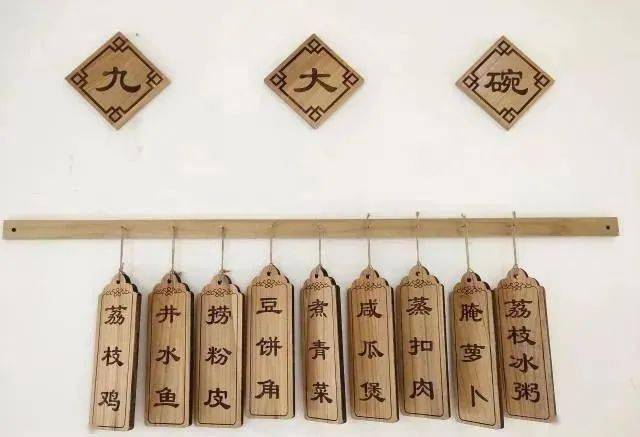 九大碗
荔枝鸡
井水鱼
捞粉皮
豆饼角
煮青菜
咸瓜煲
蒸扣肉
腌萝卜
荔枝冰粥